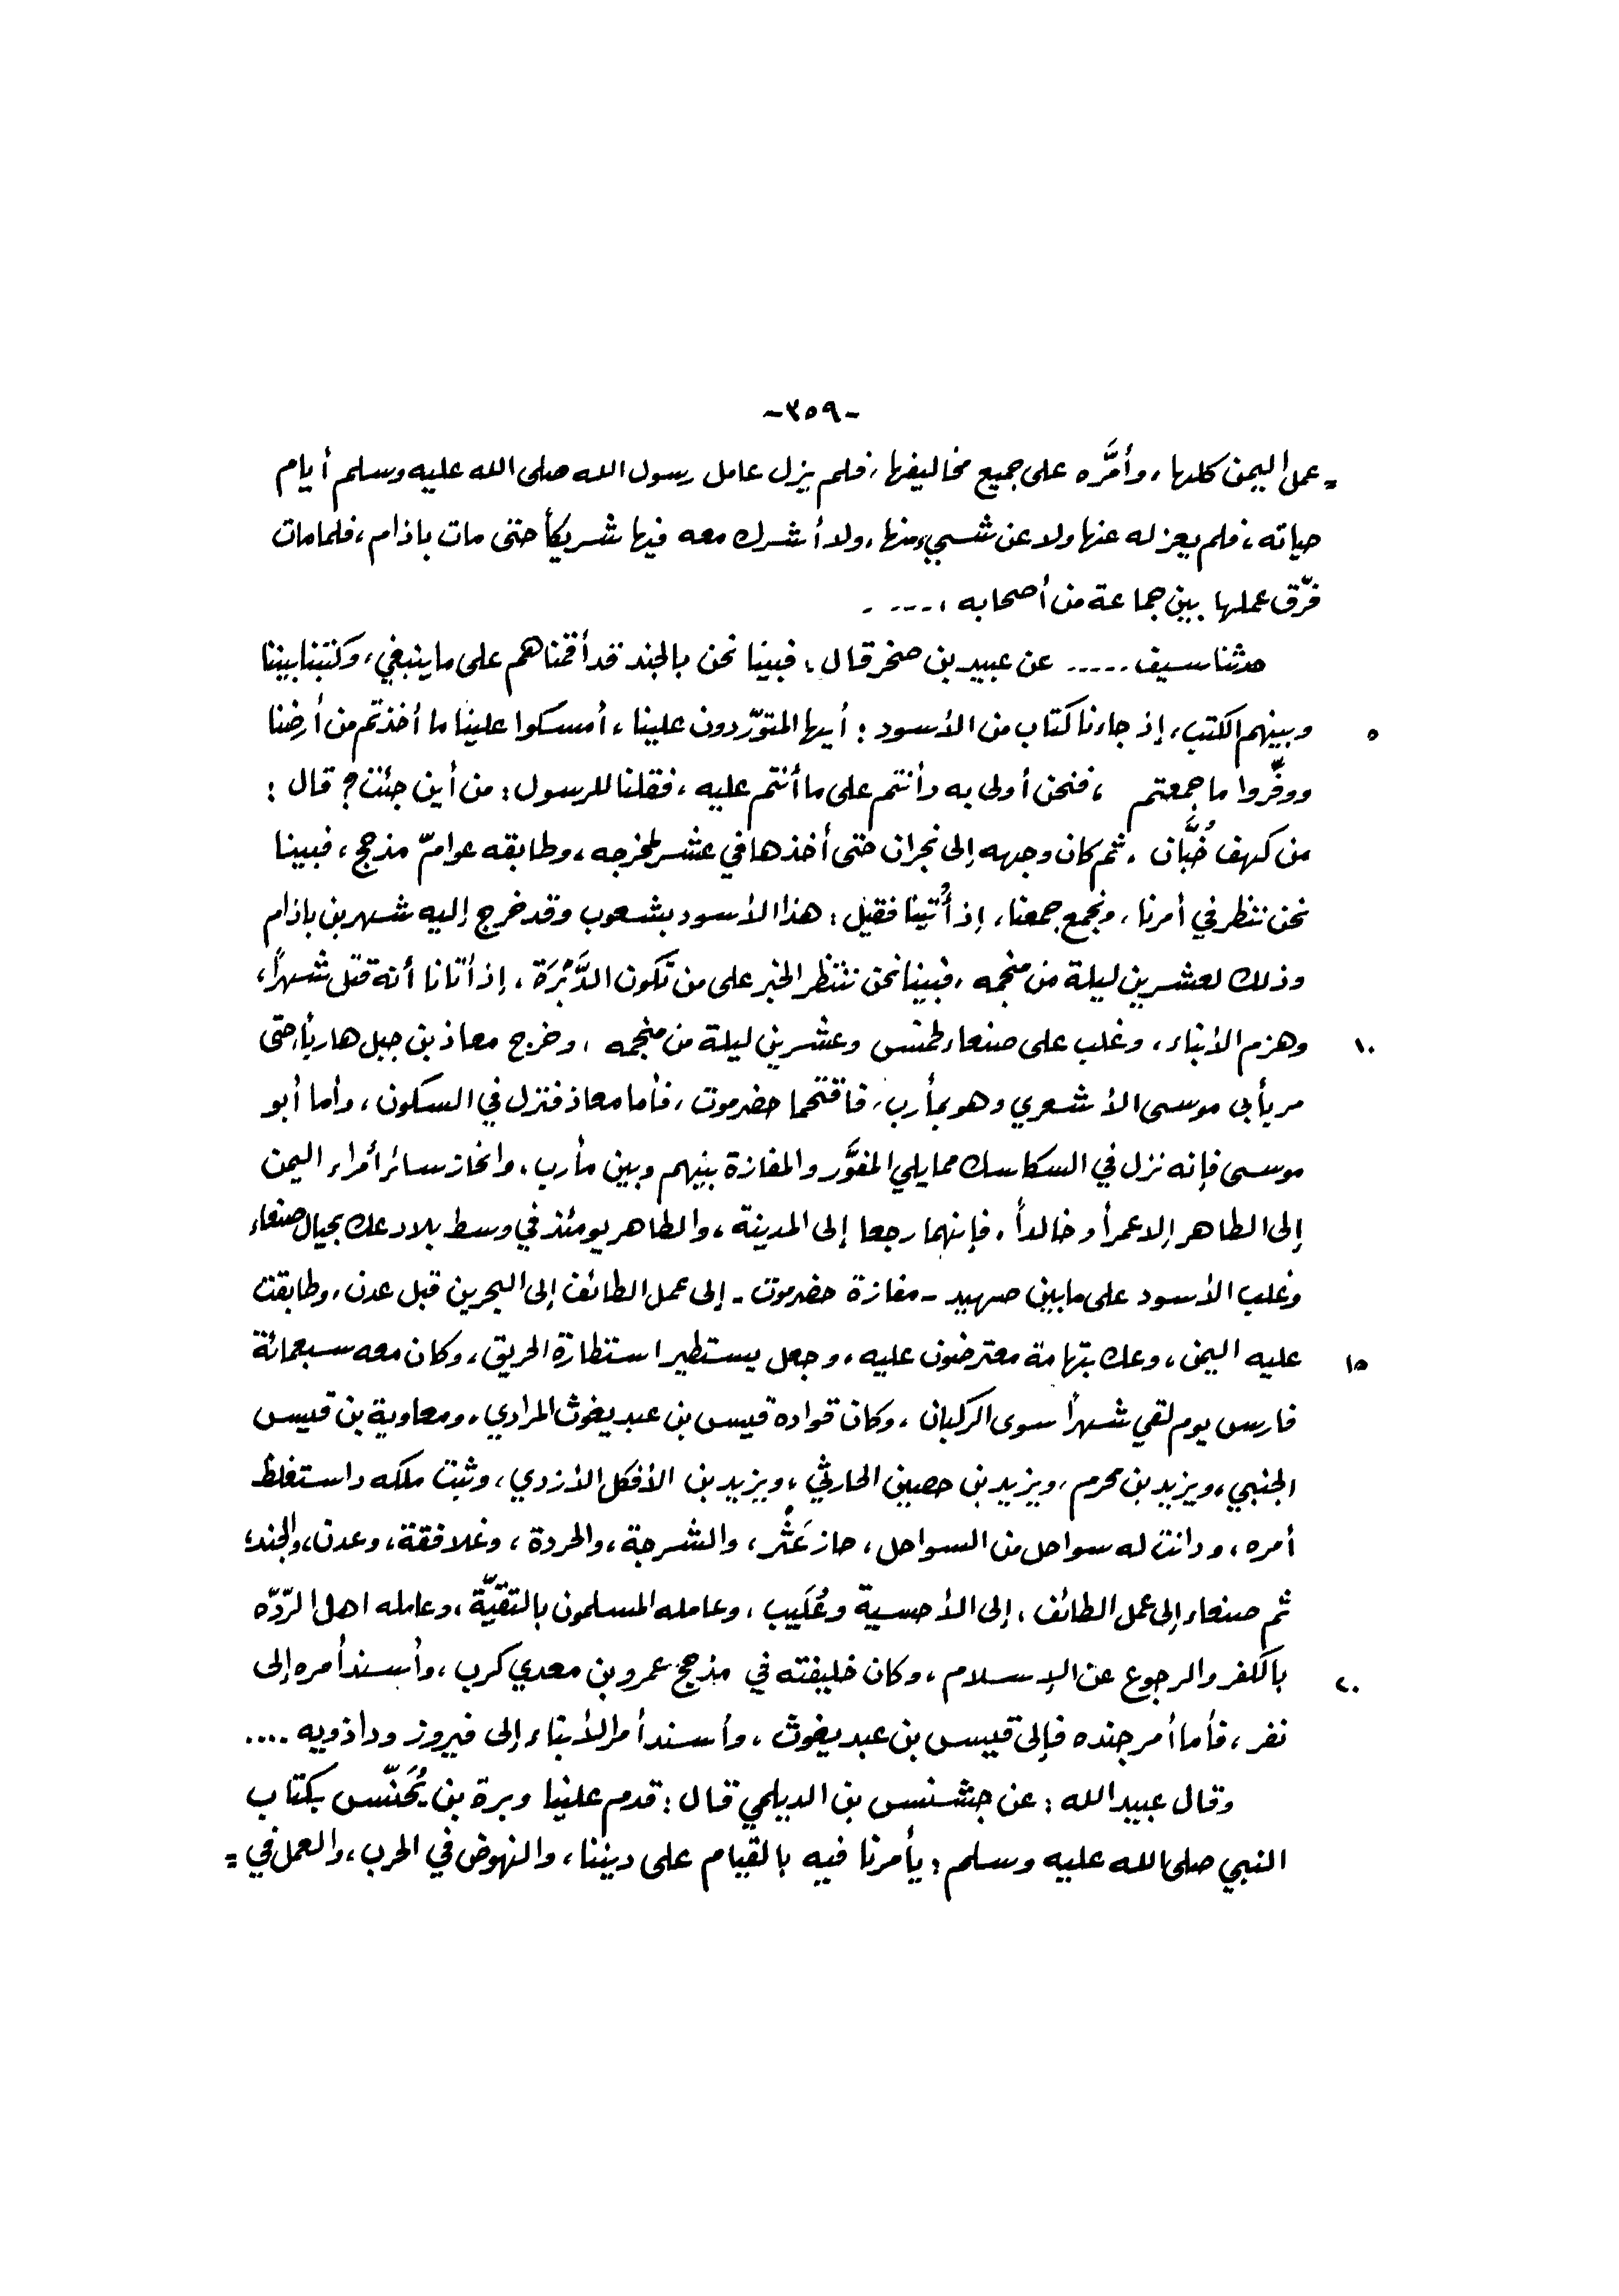 -٣٥٩-
= عمل اليمن كلها، وأمَّره على جميع مخاليفها، فلم يزل عامل رسول الله صلى الله عليه وسلم أيام
حياته، فلم يعزله عنها ولا عن شيء منها، ولا أشرك معه فيها شريكاً حتى مات باذام، فلما مات
فرّق عملها بين جماعة من أصحابه، ....
حدثنا سيف ..... عن عبيد بن صخر قال: فبينا نحن بالجند قد أقمناهم على ما ينبغي، وكتبنا بيننا
وبينهم الكتب، إذ جاءنا كتاب من الأسود: أيها المتورّدون علينا، أمسكوا علينا ما أخذتم من أرضنا ٥
ووفِّروا ما جمعتم، فنحن أولى به وأنتم على ما أنتم عليه، فقلنا للرسول: من أين جئت؟ قال:
من كهف خُبَّان، ثم كان وجهه إلى نجران حتى أخذها في عشر لمخرجه، وطابقه عوامّ مذحج، فبينا
نحن ننظر في أمرنا، ونجمع جمعنا، إذ أُتينا فقيل: هذا الأسود بشعوب وقد خرج إليه شهر بن باذام
وذلك لعشرين ليلة من منجمه، فبينا نحن ننتظر الخبر على من تكون الدَّبْرَة، إذ أتانا أنه قتل شهراً،
وهزم الأبناء، وغلب على صنعاء لخمس وعشرين ليلة من منجمه، وخرج معاذ بن جبل هارباً، حتى ١٠
مر بأبي موسى الأشعري وهو بمأرب، فاقتحما حضرموت، فأما معاذ فنزل في السكون، وأما أبو
موسى فإنه نزل في السكاسك مما يلي المفوَّر والمفازة بينهم وبين مأرب، وانحاز سائر أمراء اليمن
إلى الطاهر إلا عمراً وخالداً، فإنهما رجعا إلى المدينة، والطاهر يومئذ في وسط بلاد عك بحيال صنعاء
وغلب الأسود على ما بين صهيد - مفازة حضرموت - إلى عمل الطائف إلى البحرين قبل عدن، وطابقت
عليه اليمن، وعك بتهامة معترضون عليه، وجعل يستطير استطارة الحريق، وكان معه سبعمائة ١٥
فارس يوم لقي شهراً سوى الركبان، وكان قواده قيس بن عبد يغوث المرادي، ومعاوية بن قيس
الجنبي، ويزيد بن محرم، ويزيد بن حصين الحارثي، ويزيد بن الأفكل الأزدي، وثبت ملكه واستغلظ
أمره، ودانت له سواحل من السواحل، حاز عَثْر، والشرجة، والحردة، وغلافقة، وعدن، والجند؛
ثم صنعاء إلى عمل الطائف، إلى الأحسية وعُلَيب، وعامله المسلمون بالتقيّة، وعامله اهل الرّدّه
بالكفر والرجوع عن الإسلام، وكان خليفته في مذحج عمرو بن معدي كرب، وأسند أمره إلى ٢٠
نفر، فأما أمر جنده فإلى قيس بن عبد يغوث، وأسند أمر الأبناء إلى فيروز وداذويه ....
وقال عبيد الله: عن جشنس بن الديلمي قال: قدم علينا وبرة بن يُحَنّس بكتاب
النبي صلى الله عليه وسلم: يأمرنا فيه بالقيام على ديننا، والنهوض في الحرب، والعمل في =